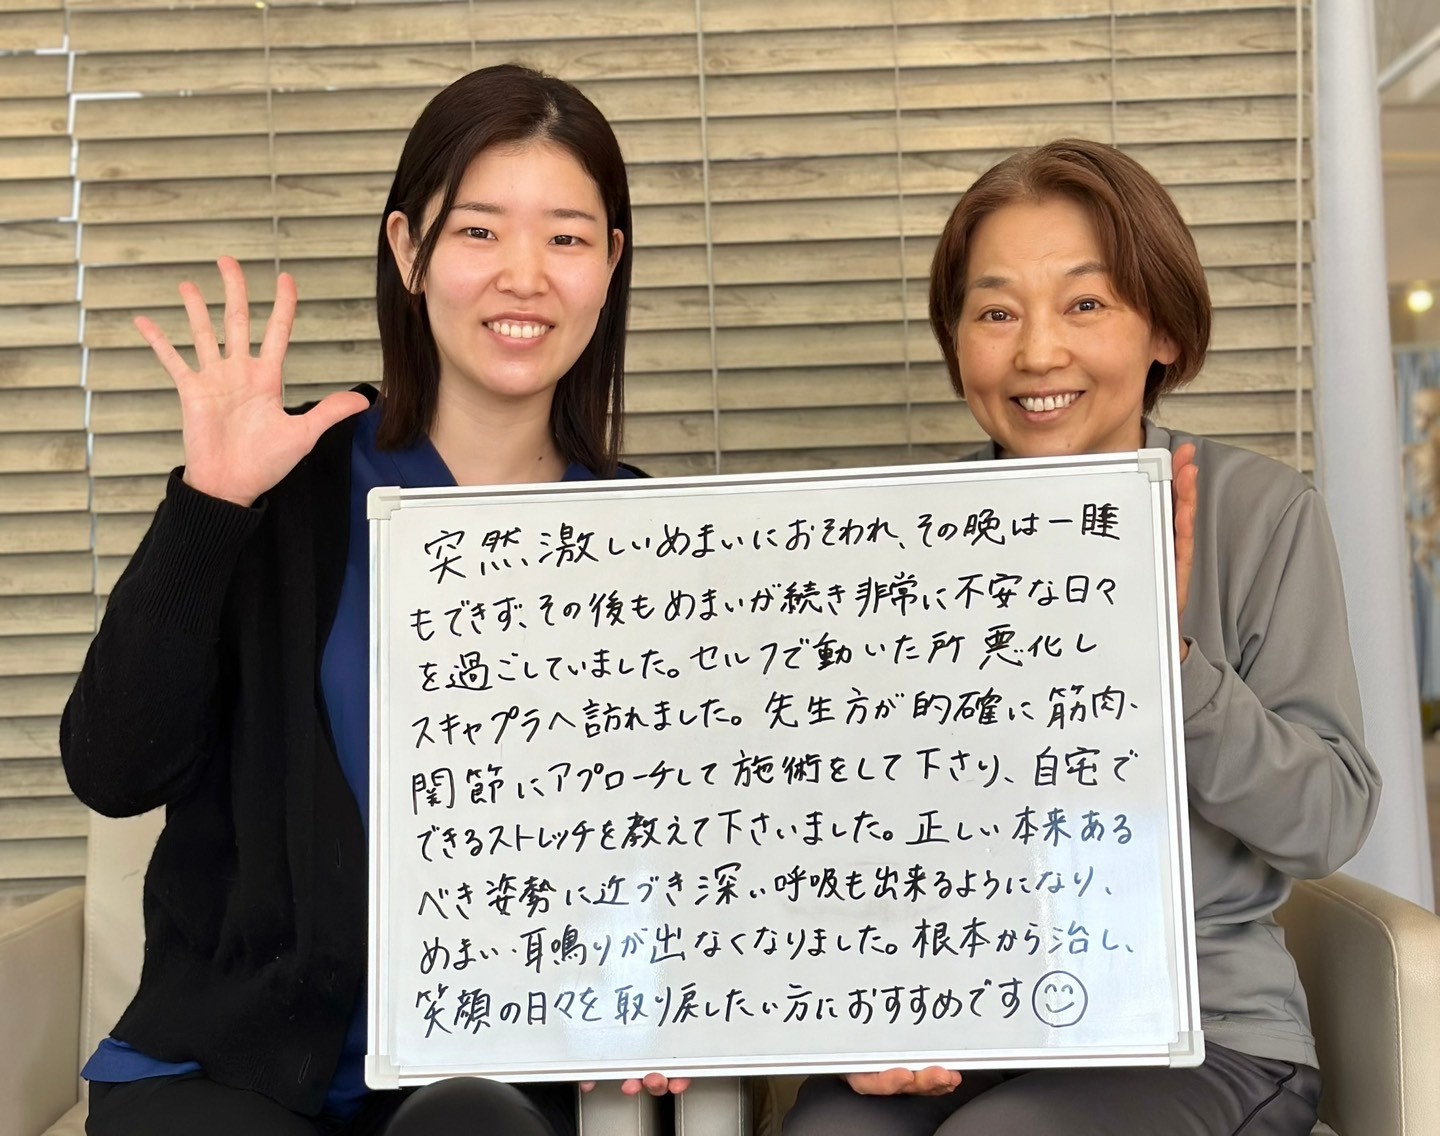 突然激しいめまいにおそわれ、その晩は一睡
もできず、その後もめまいが続き非常に不安な日々
を過ごしていました。セルフで動いた所悪化し
スキャプラへ訪れました。先生方が的確に筋肉、
関節にアプローチして施術をして下さり、自宅で
できるストレッチを教えて下さいました。正しい本来ある
べき姿勢に近づき深い呼吸も出来るようになり、
めまい・耳鳴りが出なくなりました。根本から治し、
笑顔の日々を取り戻したい方におすすめです